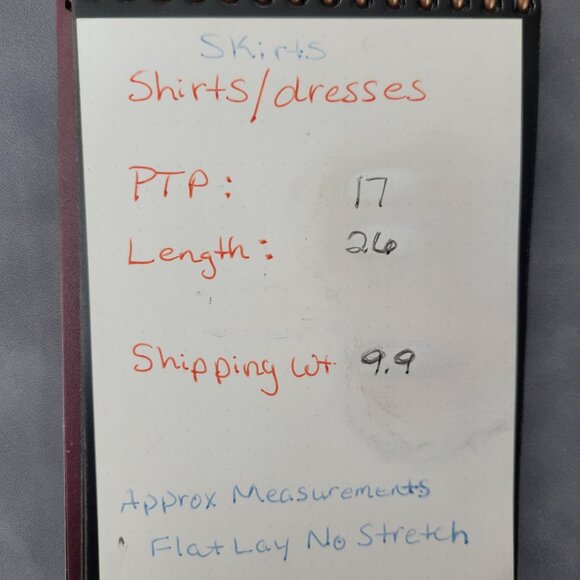 Skirts
Shirts/dresses
PTP: 17
Length: 26
Shipping wt 9.9
Approx Measurements
Flat Lay No Stretch